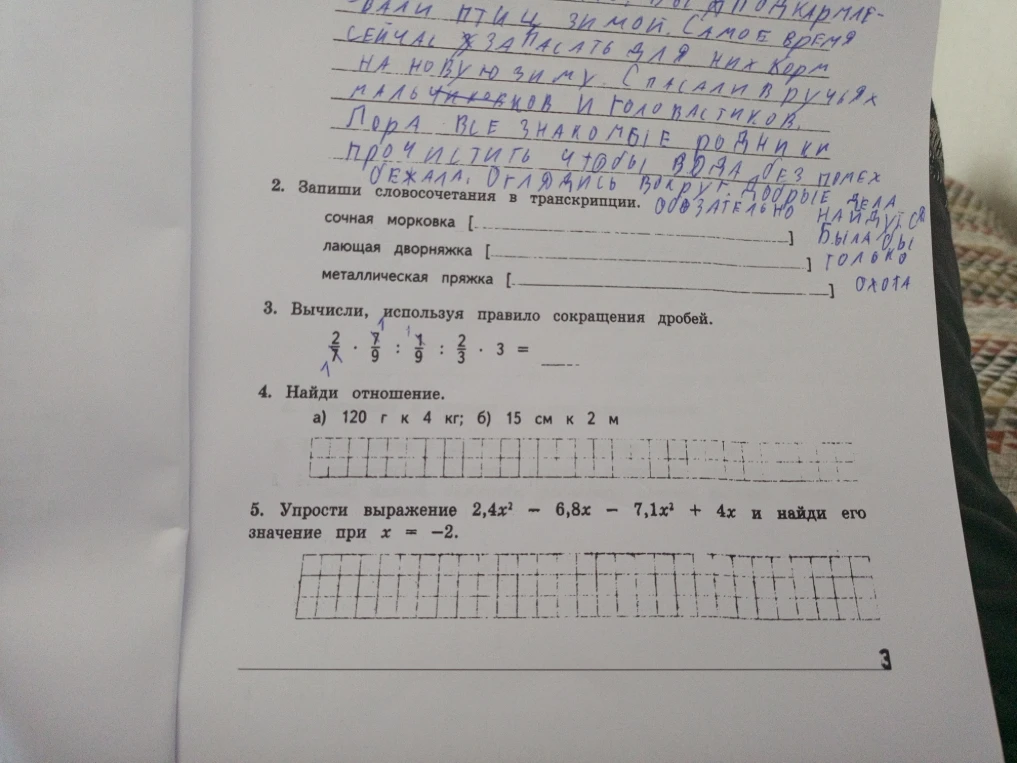 ВАЛИ ПТИЦ ЗИМОЙ. САМОЕ ВРЕМЯ
СЕЙЧАС ЗАПАСАТЬ ДЛЯ НИХ КОРМ
НА НОВУЮ ЗИМУ. СПАСАЛИ В РУЧЬЯХ
МАЛЬКОВ И ГОЛОВАСТИКОВ.
ПОРА ВСЕ ЗНАКОМЫЕ РОДНИКИ
ПРОЧИСТИТЬ ЧТОБЫ ВОДА БЕЗ ПОМЕХ
БЕЖАЛА. ОГЛЯДИСЬ ВОКРУГ. ДОБРЫЕ ДЕЛА
2. Запиши словосочетания в транскрипции. ОБЯЗАТЕЛЬНО НАЙДУТСЯ
сочная морковка [ ] БЫЛА БЫ
лающая дворняжка [ ] ТОЛЬКО
металлическая пряжка [ ] ОХОТА
3. Вычисли, используя правило сокращения дробей.
2/7 · 7/9 : 1/9 : 2/3 · 3 =
4. Найди отношение.
а) 120 г к 4 кг; б) 15 см к 2 м
5. Упрости выражение 2,4x² − 6,8x − 7,1x² + 4x и найди его
значение при x = −2.
3